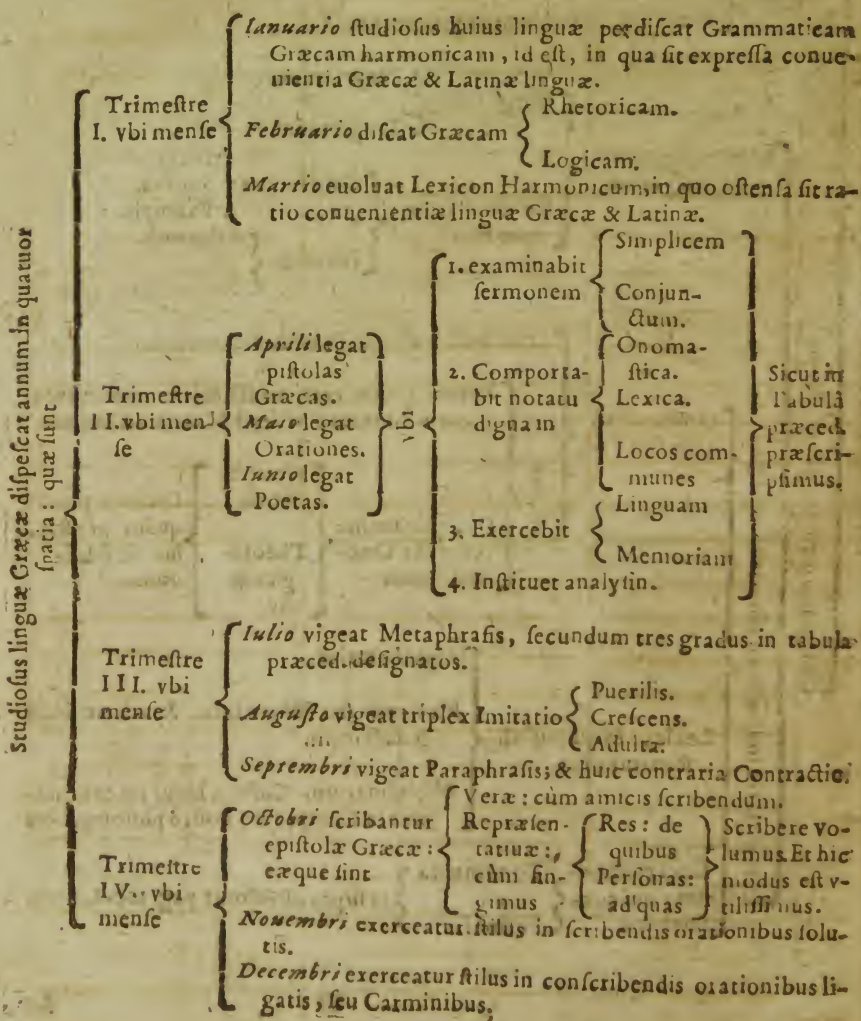 Studiosus linguæ Græcæ dispescat annum in quatuor
spatia: quæ sunt
Trimestre
I. vbi mense
Ianuario studiosus huius linguæ perdiscat Grammaticam
Græcam harmonicam, id est, in qua sit expressa conue-
nientia Græcæ & Latinæ linguæ.
Februario discat Græcam
Rhetoricam.
Logicam.
Martio euoluat Lexicon Harmonicum, in quo ostensa sit ra-
tio conuenientiæ linguæ Græcæ & Latinæ.
Trimestre
II. vbi men-
se
Aprili legat
pistolas
Græcas.
Maio legat
Orationes.
Iunio legat
Poetas.
vbi
1. examinabit
sermonem
Simplicem
Conjun-
ctum.
2. Comporta-
bit notatu
digna in
Onoma-
stica.
Lexica.
Locos com-
munes
3. Exercebit
Linguam
Memoriam
4. Instituet analysin.
Sicut in
Tabulâ
præced.
præscri-
psimus.
Trimestre
III. vbi
mense
Iulio vigeat Metaphrasis, secundum tres gradus in tabula
præced. designatos.
Augusto vigeat triplex Imitatio
Puerilis.
Crescens.
Adulta.
Septembri vigeat Paraphrasis; & huic contraria Contractio.
Trimestre
IV. vbi
mense
Octobri scribantur
epistolæ Græcæ:
eæque sint
Veræ: cùm amicis scribendum.
Repræsen-
tatiuæ:,
cùm fin-
gimus
Res: de
quibus
Personas:
ad quas
Scribere vo-
lumus. Et hic
modus est v-
tilissimus.
Nouembri exerceatur stilus in scribendis orationibus solu-
tis.
Decembri exerceatur stilus in conscribendis orationibus li-
gatis, seu Carminibus.